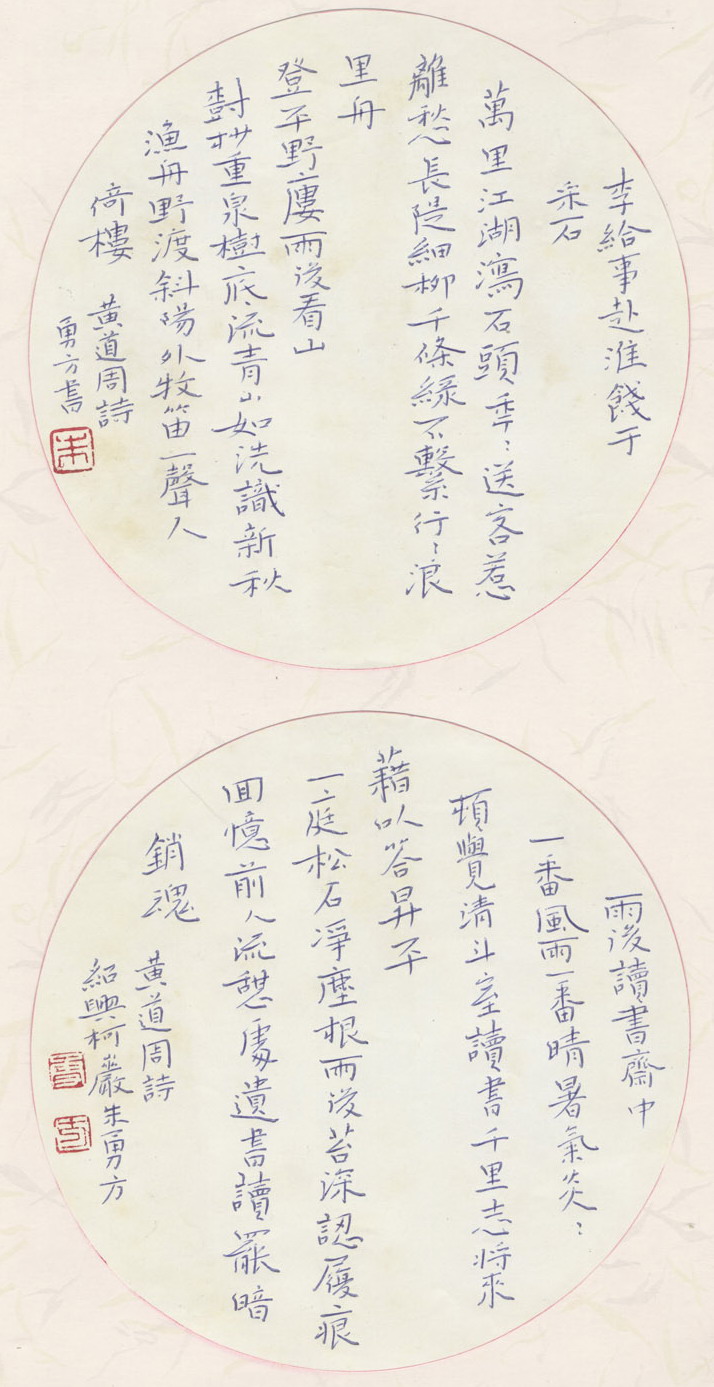 李給事赴淮餞于
采石
萬里江湖瀉石頭年〻送客惹
離愁長隄細柳千條綠不繫行〻浪
里舟
登平野廔雨後看山
樹杪重泉樹底流青山如洗識新秋
漁舟野渡斜陽外牧笛一聲人
倚樓
黃道周詩
勇方書
朱
雨後讀書齋中
一番風雨一番晴暑氣炎〻
頓覺清斗室讀書千里志將來
藉以答昇平
一庭松石淨塵根雨後苔深認屐痕
回憶前人流憩處遺書讀罷暗
銷魂
黃道周詩
紹興柯巖朱勇方